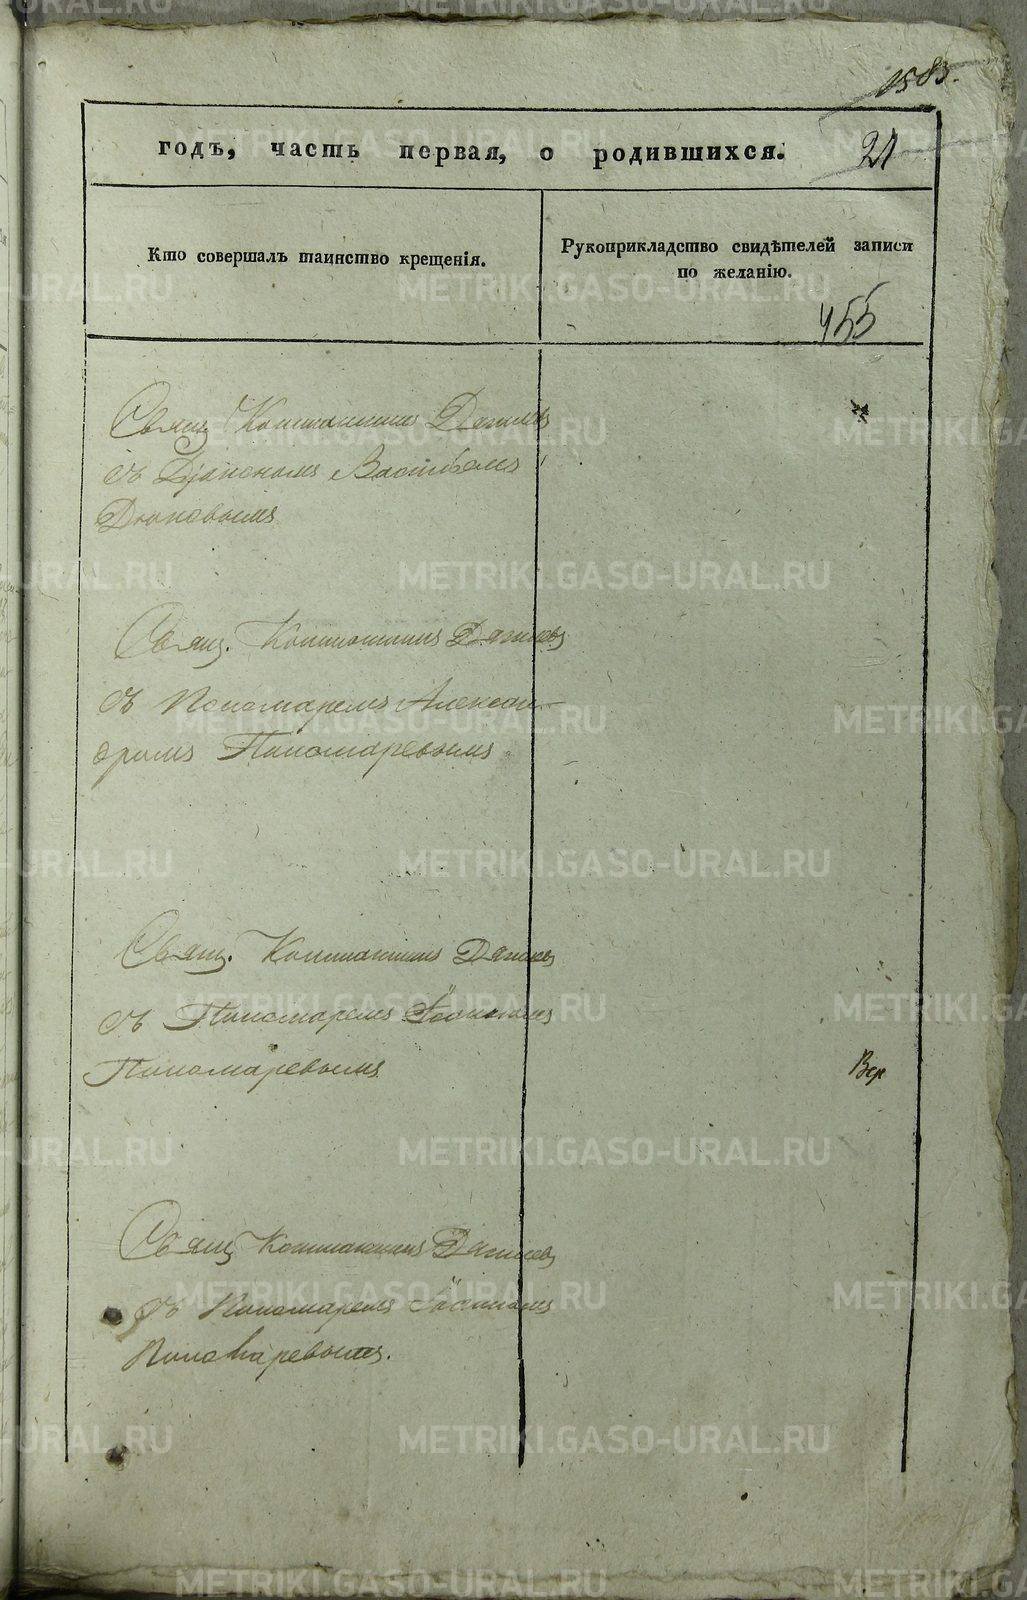 1583.
годъ, часть первая, о родившихся.
21
Кто совершалъ таинство крещенія.
Рукоприкладство свидѣтелей записи
по желанію.
455
Свящ. Константинъ
съ Василіемъ
Свящ. Константинъ
съ Пономаремъ Алексан-
дромъ Пономаревымъ
Свящ. Константинъ
съ Пономаремъ
Пономаревымъ
Вер
Свящ. Константинъ
съ Пономаремъ
Пономаревымъ.
METRIKI.GASO-URAL.RU